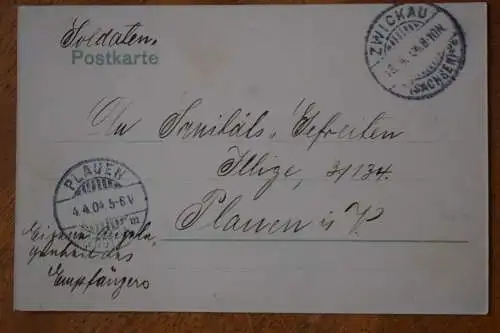 Soldaten.
Postkarte
ZWICKAU
(SACHSEN)
An Sanitäts-Gefreiten
Illige, 3/134.
Plauen i. V.
PLAUEN
4.4.04 5-6V
Eigene Angele-
genheit des
Empfängers